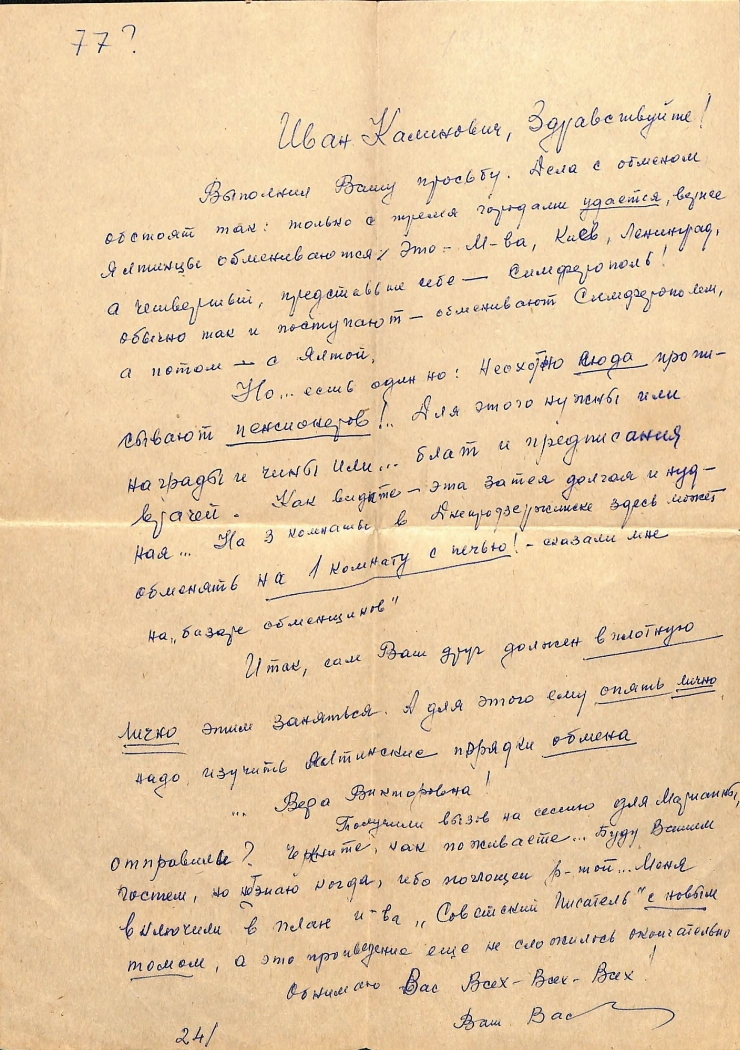 77?
Иван Калинович, Здравствуйте!
Выполнил Вашу просьбу. Дела с обменом
обстоят так: только с тремя городами удается, вернее
Ялтинцы обмениваются: Это - М-ва, Киев, Ленинград,
а четвертый, представьте себе — Симферополь!
обычно так и поступают — обменивают Симферополем,
а потом — с Ялтой.
Но... есть одно но: Неохотно сюда пропи-
сывают пенсионеров!.. Для этого нужны или
награды и чины или... блат и предписания
врачей. Как видите — эта затея долгая и нуд-
ная... На 3 комнаты в Днепродзержинске здесь может
обменять на 1 комнату с печью! - сказали мне
на „базаре обменщиков"
Итак, сам Ваш друг должен вплотную
лично этим заняться. А для этого ему опять лично
надо изучить Ялтинские порядки обмена
... Вера Викторовна!
Получили вызов на сессию для Марианны,
отправили? Черкните, как поживаете... Буду Вашим
гостем, но не знаю когда, ибо поглощен р-той... Меня
включили в план и-ва „Советский Писатель" с новым
томом, а это произведение еще не сложилось окончательно
Обнимаю Вас Всех-Всех-Всех!
Ваш Вас
24/